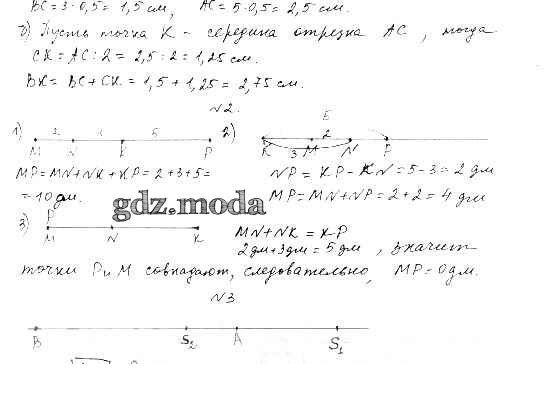 BC = 3·0,5 = 1,5 см, AC = 5·0,5 = 2,5 см.
б) Пусть точка K - середина отрезка AC, тогда
CK = AC : 2 = 2,5 : 2 = 1,25 см.
BK = BC + CK = 1,5 + 1,25 = 2,75 см.
N2.
1) 2 5
M N K P
MP = MN + NK + KP = 2+3+5=
= 10 дм.
2) 5
2
K M N P
3
NP = KP - KN = 5-3 = 2 дм
MP = MN + NP = 2+2 = 4 дм
gdz.moda
3) P
M N K
MN + NK = KP
2дм+3дм = 5 дм, значит
точки P и M совпадают, следовательно, MP = 0 дм.
N3
B S2 A S1